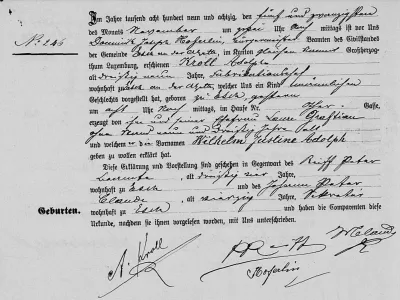 Im Jahre tausend acht hundert neun und achtzig, den fünf und zwanzigsten
des Monats November um zehn Uhr mittags ist vor Uns
Dominik Joseph Hoferlin, Bürgermeister Beamten des Civilstandes
der Gemeinde Esch an der Alzette, im Kanton gleichen Namens Großherzog-
N° 246
thum Luxemburg, erschienen Kroll Adolph
alt dreißig neun Jahre, Fabrikationschef
wohnhaft zu Esch an der Alzette, welcher Uns ein Kind männlichen
Geschlechts vorgestellt hat, geboren zu Esch, gestern
um acht Uhr mittags, im Hause Nr. Gasse,
erzeugt von ihm und seiner Ehefrau Laure
ohne Stand neun und dreißig Jahre alt
und welchem er die Vornamen Wilhelm Justine Adolph
geben zu wollen erklärt hat.
Diese Erklärung und Vorstellung sind geschehen in Gegenwart des Reiff Peter
alt dreißig vier Jahre,
wohnhaft zu Esch und des Johann Peter
Claude, alt vierzig Jahre, Sekretär
Geburten.
wohnhaft zu Esch und haben die Comparenten diese
Urkunde, nachdem sie ihnen vorgelesen worden, mit Uns unterschrieben.
A. Kroll
Hoferlin